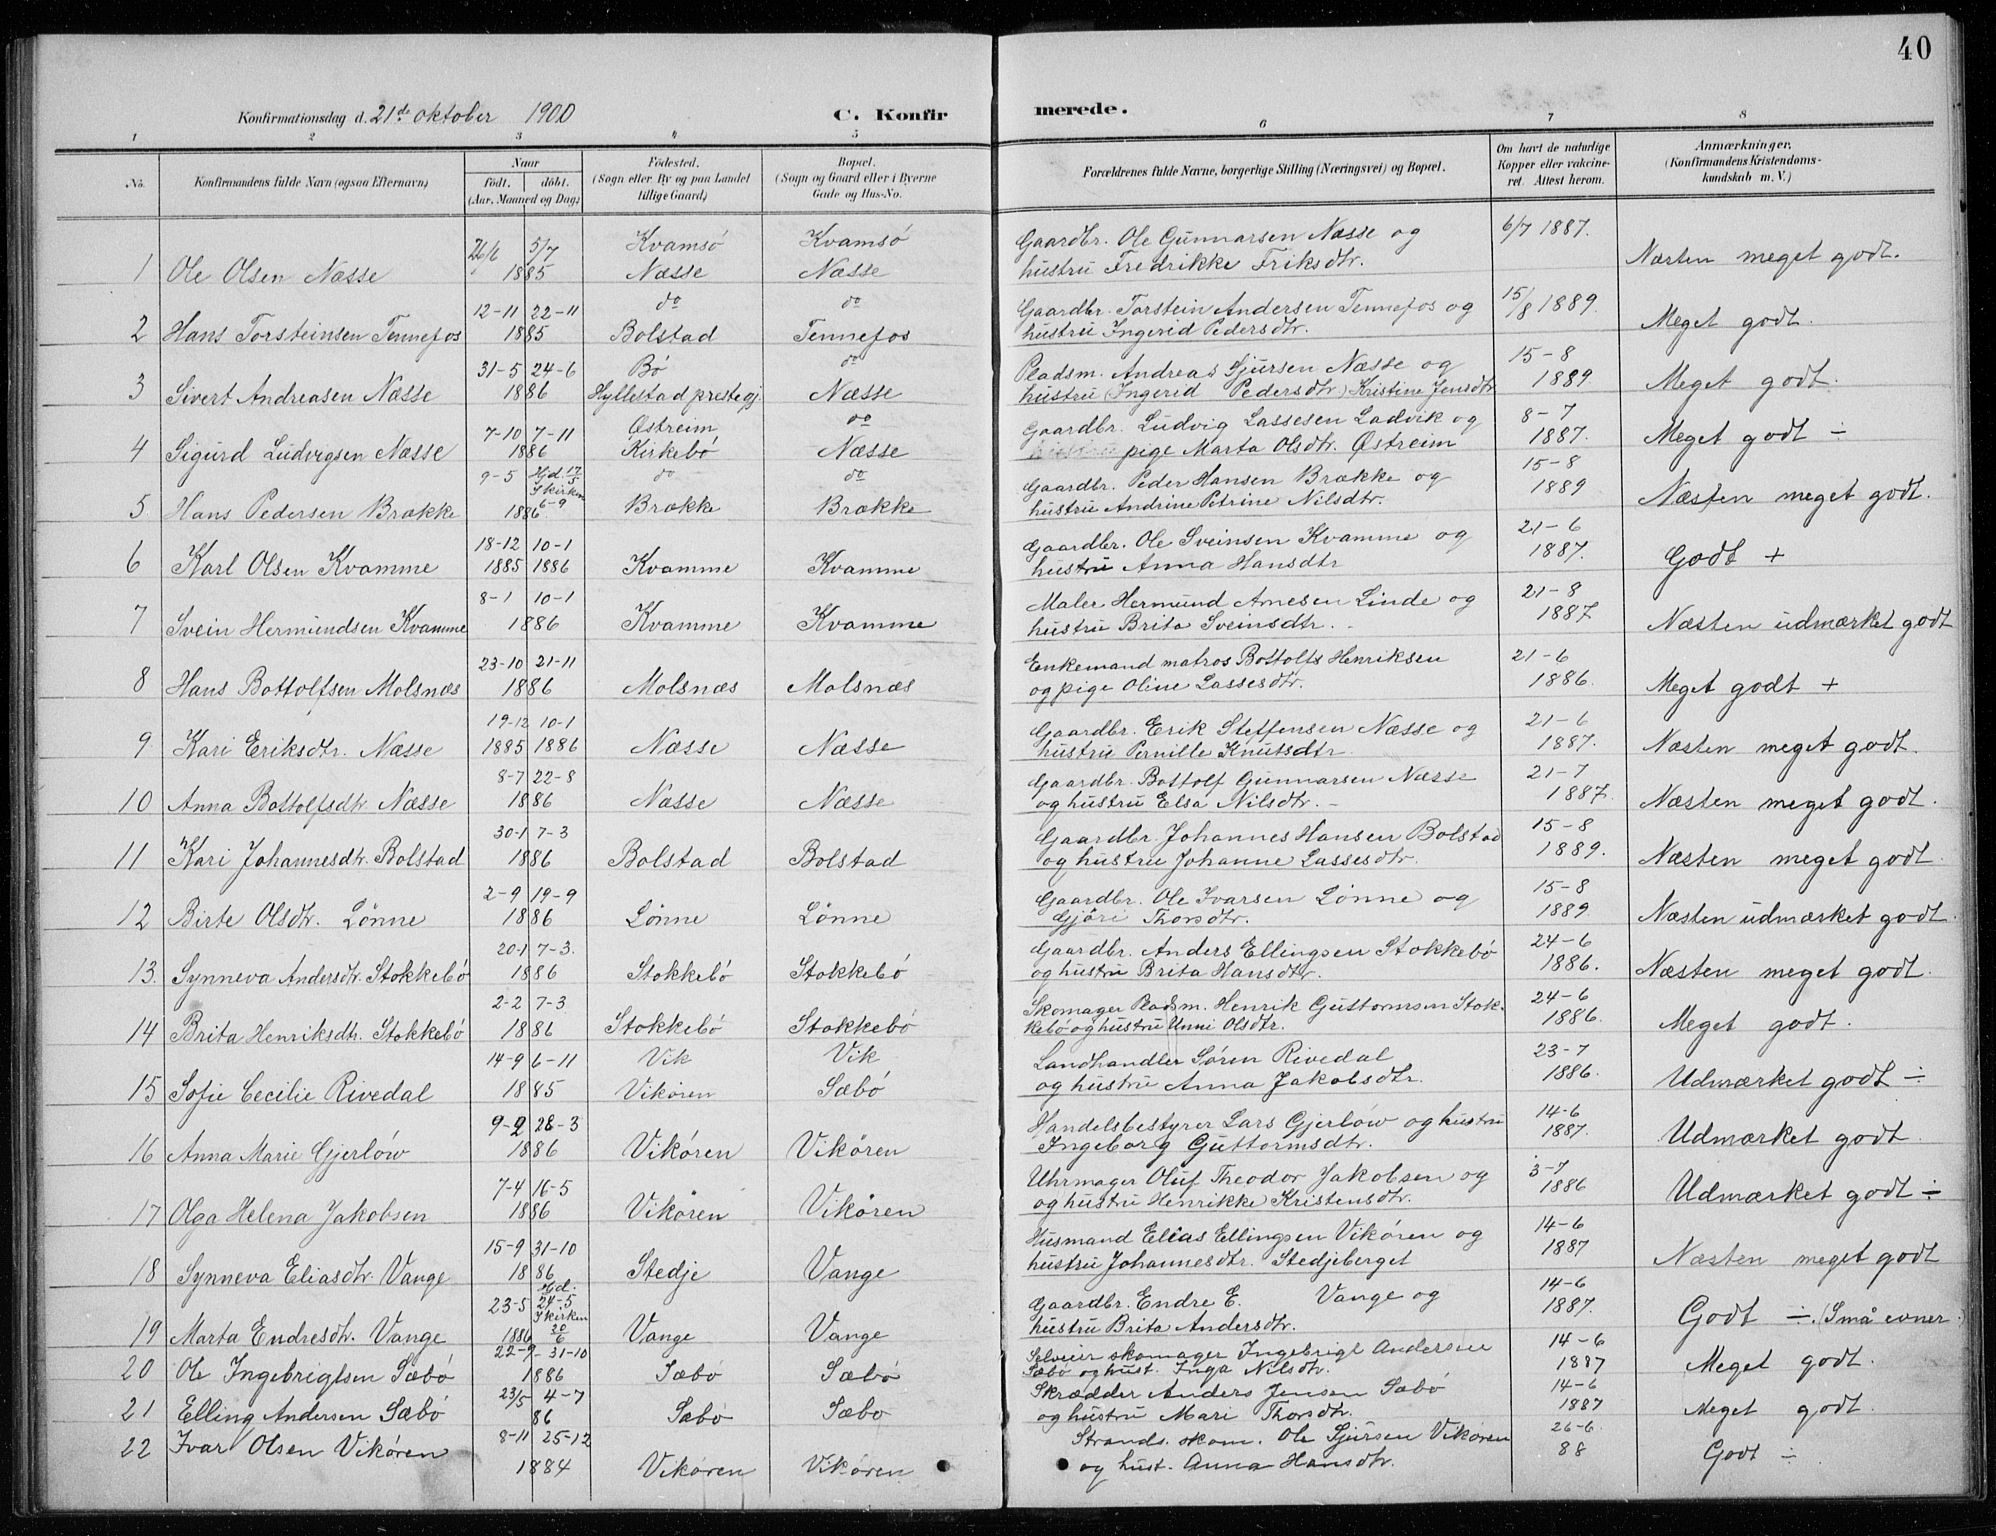 40
Konfirmationsdag d. 21de oktober 1900 C. Konfirmerede.
1 2 3 4 5 6 7 8
No. Konfirmandens fulde Navn (ogsaa Efternavn) Naar født. døbt. (Aar, Maaned og Dag) Fødested. (Sogn eller By og paa Landet tillige Gaard) Bopæl. (Sogn og Gaard eller i Byerne Gade og Hus-No. Forældrenes fulde Navne, borgerlige Stilling (Næringsvei) og Bopæl. Om havt de naturlige Kopper eller vakcineret. Attest herom. Anmærkninger, (Konfirmandens Kristendomskundskab m. V.)
26/6 5/7 Kvamsö Kvamsö Gaardbr. Ole Gunnarsen Næsse og 6/7 1887.
1 Ole Olsen Næsse 1885 Næsse Næsse hustru Fredrikke Friksdtr. Næsten meget godt.
12-11 22-11 do do Gaardbr. Torstein Andersen Tennefos og 15/8 1889.
2 Hans Torsteinsen Tennefos 1885 Bolstad Tennefos hustru Ingerid Pedersdtr. Meget godt.
31-5 24-6 Bö do Pladsm. Andreas Sjursen Næsse og 15-8
3 Sivert Andreasen Næsse 1886 Hyllestad prestegj. Næsse hustru (Ingerid Pedersdtr) Kristine Jensdtr 1889 Meget godt.
7-10 7-11 Østreim do Gaardbr. Ludvig Lassesen Ladvik og 8-7
4 Sigurd Ludvigsen Næsse 1886 Kirkebö Næsse pige Marta Olsdtr. Østreim 1887. Meget godt ÷
9-5 Hd. 17/5 I kirken 6-9 do do Gaardbr. Peder Hansen Brække og 15-8
5. Hans Pedersen Brække 1886 Brække Brække hustru Andrine Petrine Nilsdtr. 1889 Næsten meget godt.
18-12 10-1 Gaardbr. Ole Sveinsen Kvamme og 21-6
6 Karl Olsen Kvamme 1885 1886 Kvamme Kvamme hustru Anna Hansdtr 1887. Godt +
8-1 10-1 Maler Hermund Arnesen Linde og 21-8
7 Svein Hermundsen Kvamme 1886 Kvamme Kvamme hustru Brita Sveinsdtr. 1887 Næsten udmærket godt
23-10 21-11 Enkemand matros Bottolfs Henriksen 21-6
8 Hans Bottolfsen Molsnæs 1886 Molsnæs Molsnæs og pige Oline Lassesdtr. 1886. Meget godt +
19-12 10-1 Gaardbr. Erik Steffensen Næsse og 21-6
9 Kari Eriksdtr. Næsse 1885 1886 Næsse Næsse hustru Pernille Knutsdtr 1887. Næsten meget godt.
8-7 22-8 Gaardbr. Bottolf Gunnarsen Næsse 21-7
10 Anna Bottolfsdtr Næsse 1886 Næsse Næsse og hustru Elsa Nilsdtr. 1887. Næsten meget godt.
30-1 7-3 Gaardbr. Johannes Hansen Bolstad 15-8
11 Kari Johannesdtr. Bolstad 1886 Bolstad Bolstad og hustru Johanne Lassesdtr. 1889. Næsten meget godt.
2-9 19-9 Gaardbr. Ole Ivarsen Lønne og 15-8
12 Birte Olsdtr. Lönne 1886 Lönne Lönne Gjöri Thorsdtr. 1889. Næsten udmærket godt.
20-1 7-3. Gaardbr. Anders Ellingsen Stokkebö 24-6
13. Synneva Andersdtr. Stokkebö 1886 Stokkebö Stokkebö og hustru Brita Hansdtr. 1886. Næsten meget godt.
2-2 7-3 Skomager Pladsm. Henrik Guttormsen Stok- 24-6
14 Brita Henriksdtr. Stokkebö 1886 Stokkebö Stokkebö kebö og hustru Unni Olsdtr. 1886. Meget godt.
14-9 6-11 Vik Vik Landhandler Sören Rivedal 23-7
15 Sofie Cecilie Rivedal 1885 Vikören Sæbö og hustru Anna Jakobsdtr. 1886. Udmærket godt ÷
9-2 28-3 Handelsbestyrer Lars Gjerlöw og hustru 14-6
16 Anna Marie Gjerlöw 1886 Vikören Vikören Ingeborg Guttormsdtr. 1887. Udmærket godt.
7-4 16-5 Uhrmager Oluf Theodor Jakobsen og 3-7
17 Olga Helena Jakobsen 1886 Vikören Vikören og hustru Henrikke Kristensdtr. 1886 Udmærket godt ÷
15-9 31-10 Husmand Elias Ellingsen Vikören og 14-6
18 Synneva Eliasdtr. Vange 1886 Stedje Vange hustru Johannesdtr. Stedjeberget 1887 Næsten meget godt
23-5 Hd. 24-5 I kirken 20/6 Gaardbr. Endre E. Vange og 14-6
19 Marta Endresdtr. Vange 1886 Vange Vange hustru Brita Andersdtr. 1887. Godt ÷. (Små evner.)
22-9 31-10 Selveier skomager Ingebrigt Andersen 14-6
20 Ole Ingebrigtsen Sæbö 1886 Sæbö Sæbö Sæbö og hust. Inga Nilsdtr. 1887 Meget godt.
23/5 4-7 Skrædder Anders Jensen Sæbö 14-6
21 Elling Andersen Sæbö 86 Sæbö Sæbo og hustru Mari Thorsdtr. 1887 Meget godt.
22 Ivar Olsen Vikören 8-11 25-12 Strands. skom. Ole Sjursen Vikören 26-6
1884 Vikören Vikören og hust. Anna Hansdtr. 88 Godt ÷